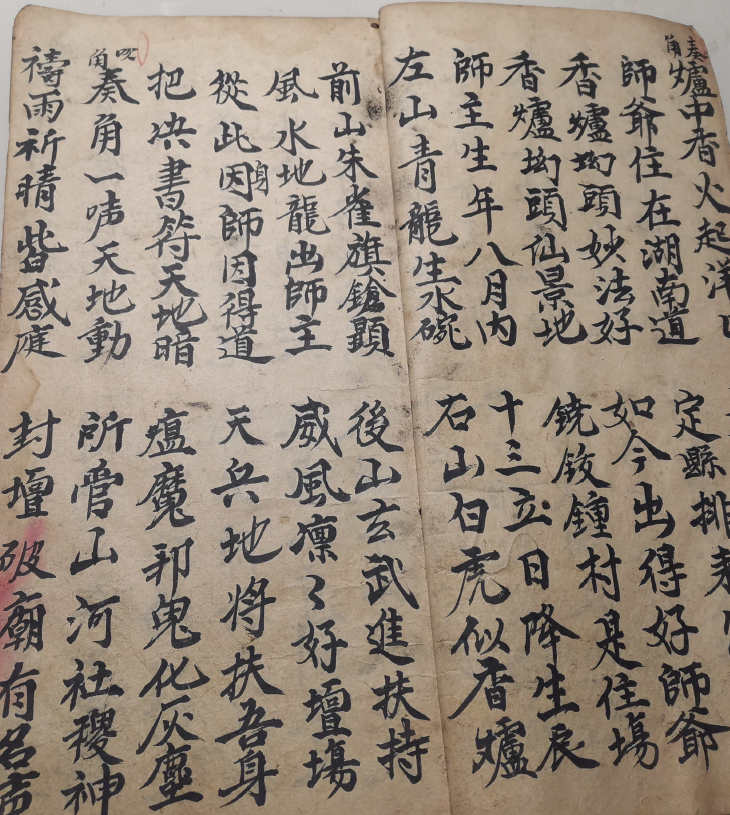 奏角
爐中香火起洋
師爺住在湖南道 定縣排来
香爐㘭頭妙法好 如今出得好師爺
香爐㘭頭仙景地 鐃鈸鐘村是住塲
師主生年八月内 十三立日降生辰
左山青龍生水碗 右山白虎似香爐
前山朱雀旗鎗顕 後山玄武進扶持
風水地龍出師主 威風凛〻好壇塲
從此因身師因得道 天兵地将扶吾身
把决書符天地暗 瘟魔邪鬼化灰塵
吹角
奏角一声天地動 所管山河社稷神
禱雨祈晴皆感應 封壇破廟有名声